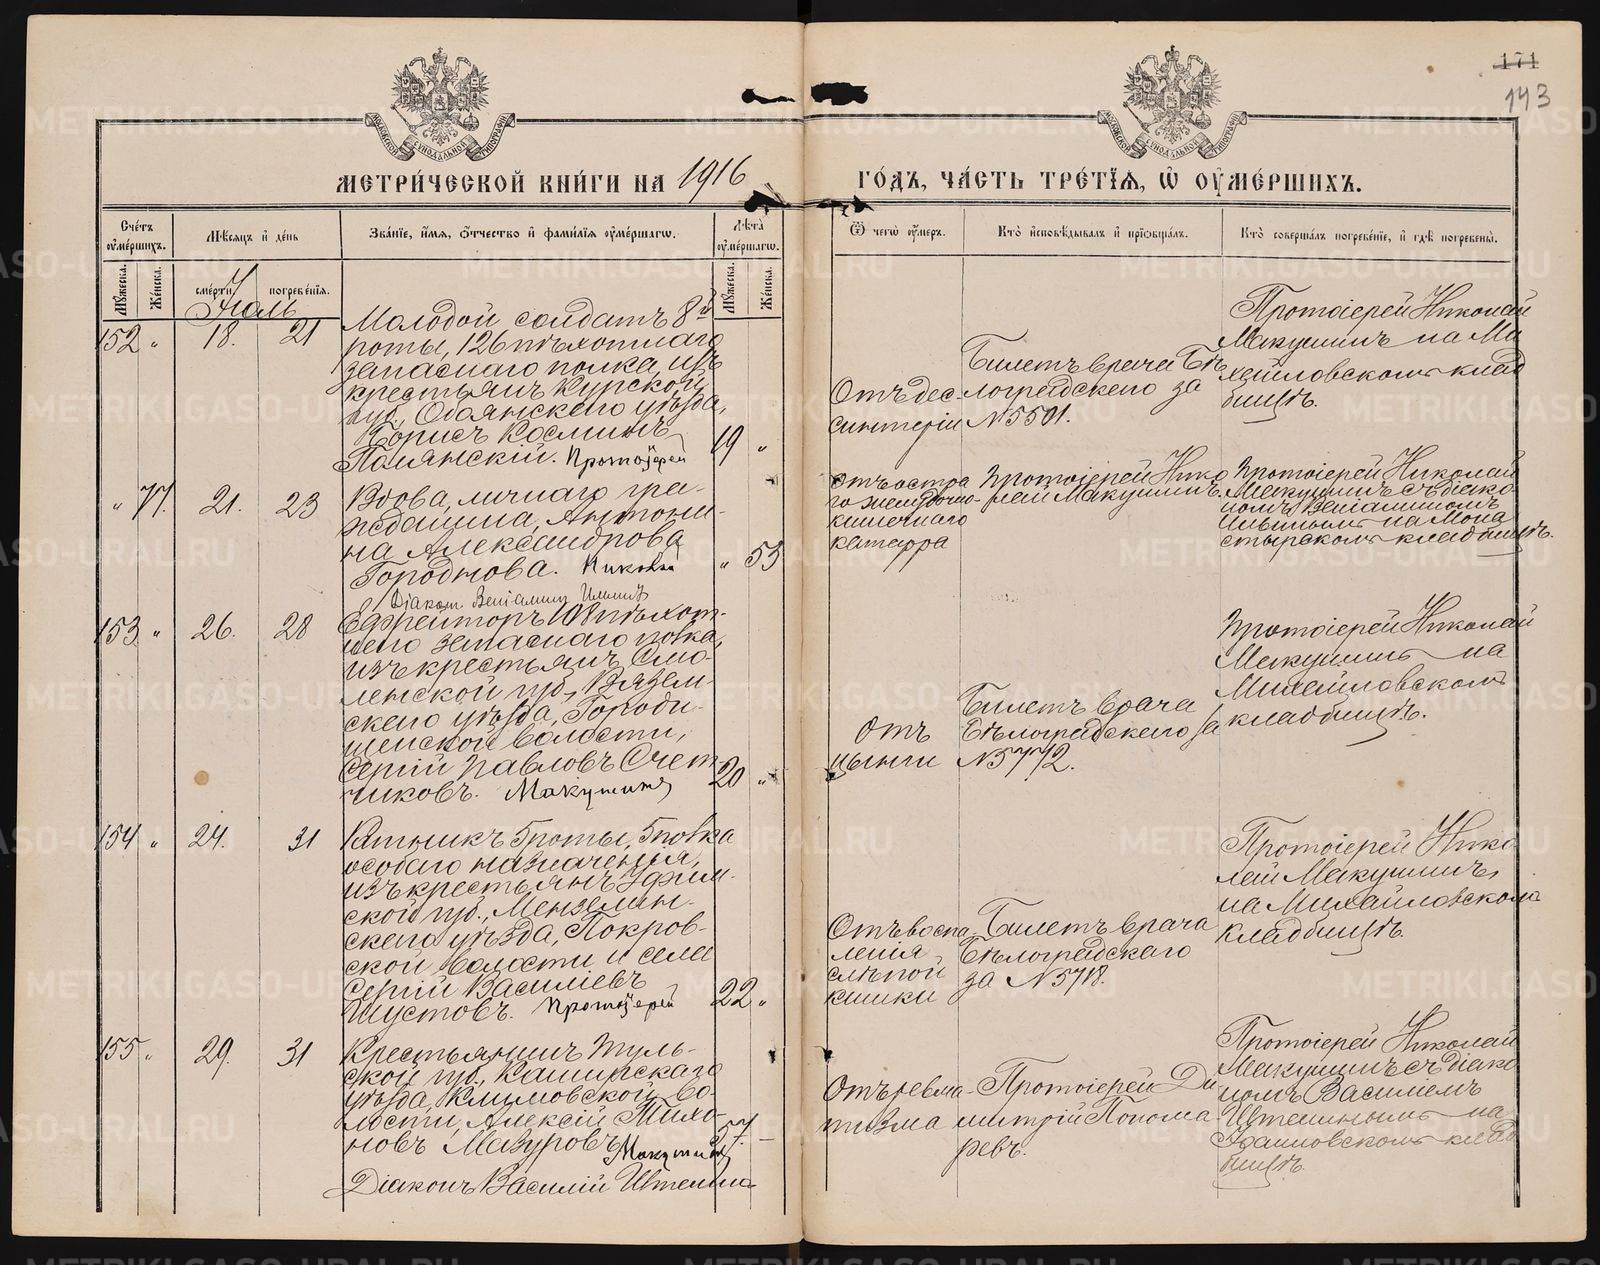 171
143
МЕТРИ́ЧЕСКОЙ КНИ́ГИ НА 1916
ГО́ДЪ, ЧА́СТЬ ТРЕ́ТІѦ, Ѡ҆ ОУ҆МЕ́РШИХЪ.
Сче́тъ оу҆ме́ршихъ.
Мѣ́сяцъ и҆ де́нь
Зва́нїе, и҆́мя, ѻ҆́тчество и҆ фами́лїя оу҆ме́ршагѡ.
Лѣ́та оу҆ме́ршагѡ.
Ѿ чегѡ̀ оу҆́меръ.
Кто̀ и҆сповѣ́дывалъ и҆ прїѡбща́лъ.
Кто̀ соверша́лъ погребе́нїе, и҆ гдѣ̀ погребены̀.
Мꙋ́жеска.
Же́нска.
сме́рти.
погребе́нїя.
Мꙋ́жеска.
Же́нска.
Іюль
152 " 18. 21
Молодой солдатъ 8й
роты, 126 пѣхотнаго
запаснаго полка, изъ
крестьянъ Курской
губ., Обоянскаго уѣзда,
Борисъ Косминъ
Полянскій. Протоіерей
19 "
Отъ дес
интеріи
Билетъ врача Бѣ
лоградскаго за
№ 5501.
Протоіерей Николай
Макушинъ на Ми
хайловскомъ клад
бищѣ.
" 77. 21. 23
Вдова, личнаго гра-
жданина, Антони-
на Александрова
Городнова. Николай
" 53
Діаконъ Веніаминъ Ильинъ
отъ остра
го желудочно-
кишечнаго
катарра
Протоіерей Нико
лай Макушинъ.
Протоіерей Николай
Макушинъ съ діако
номъ Веніаминомъ
Ильинымъ на Мона
стырскомъ кладбищѣ.
153 " 26. 28
Ефрейторъ 108 пѣхот-
наго запаснаго полка,
изъ крестьянъ Смо-
ленской губ., Вязем-
скаго уѣзда, Городи-
щенской волости,
Сергій Павловъ Счет
чиковъ. Макушинъ
20 "
Отъ
цынги
Билетъ врача
Бѣлоградскаго за
№ 5772.
Протоіерей Николай
Макушинъ на
Михайловскомъ
кладбищѣ.
154 " 24. 31
Ратникъ 5 роты, 5 полка
особаго назначенія,
изъ крестьянъ Уфим-
ской губ., Мензелин-
скаго уѣзда, Покров-
ской волости и села
Сергій Василіевъ
Шустовъ. Протоіерей
22 "
Отъ воспа
ленія
слѣпой
кишки
Билетъ врача
Бѣлоградскаго
за № 5718.
Протоіерей Нико
лай Макушинъ,
на Михайловскомъ
кладбищѣ.
155 " 29. 31
Крестьянинъ Туль-
ской губ., Каширскаго
уѣзда, Климовской во-
лости, Алексій Тихо-
новъ Мазуровъ Макушинъ
57. -
Діаконъ Василій Иштелинъ
Отъ ревма-
тизма
Протоіерей Ди
митрій Понома
ревъ.
Протоіерей Николай
Макушинъ съ діако
номъ Василіемъ
Иштелинымъ на
Ивановскомъ клад
бищѣ.